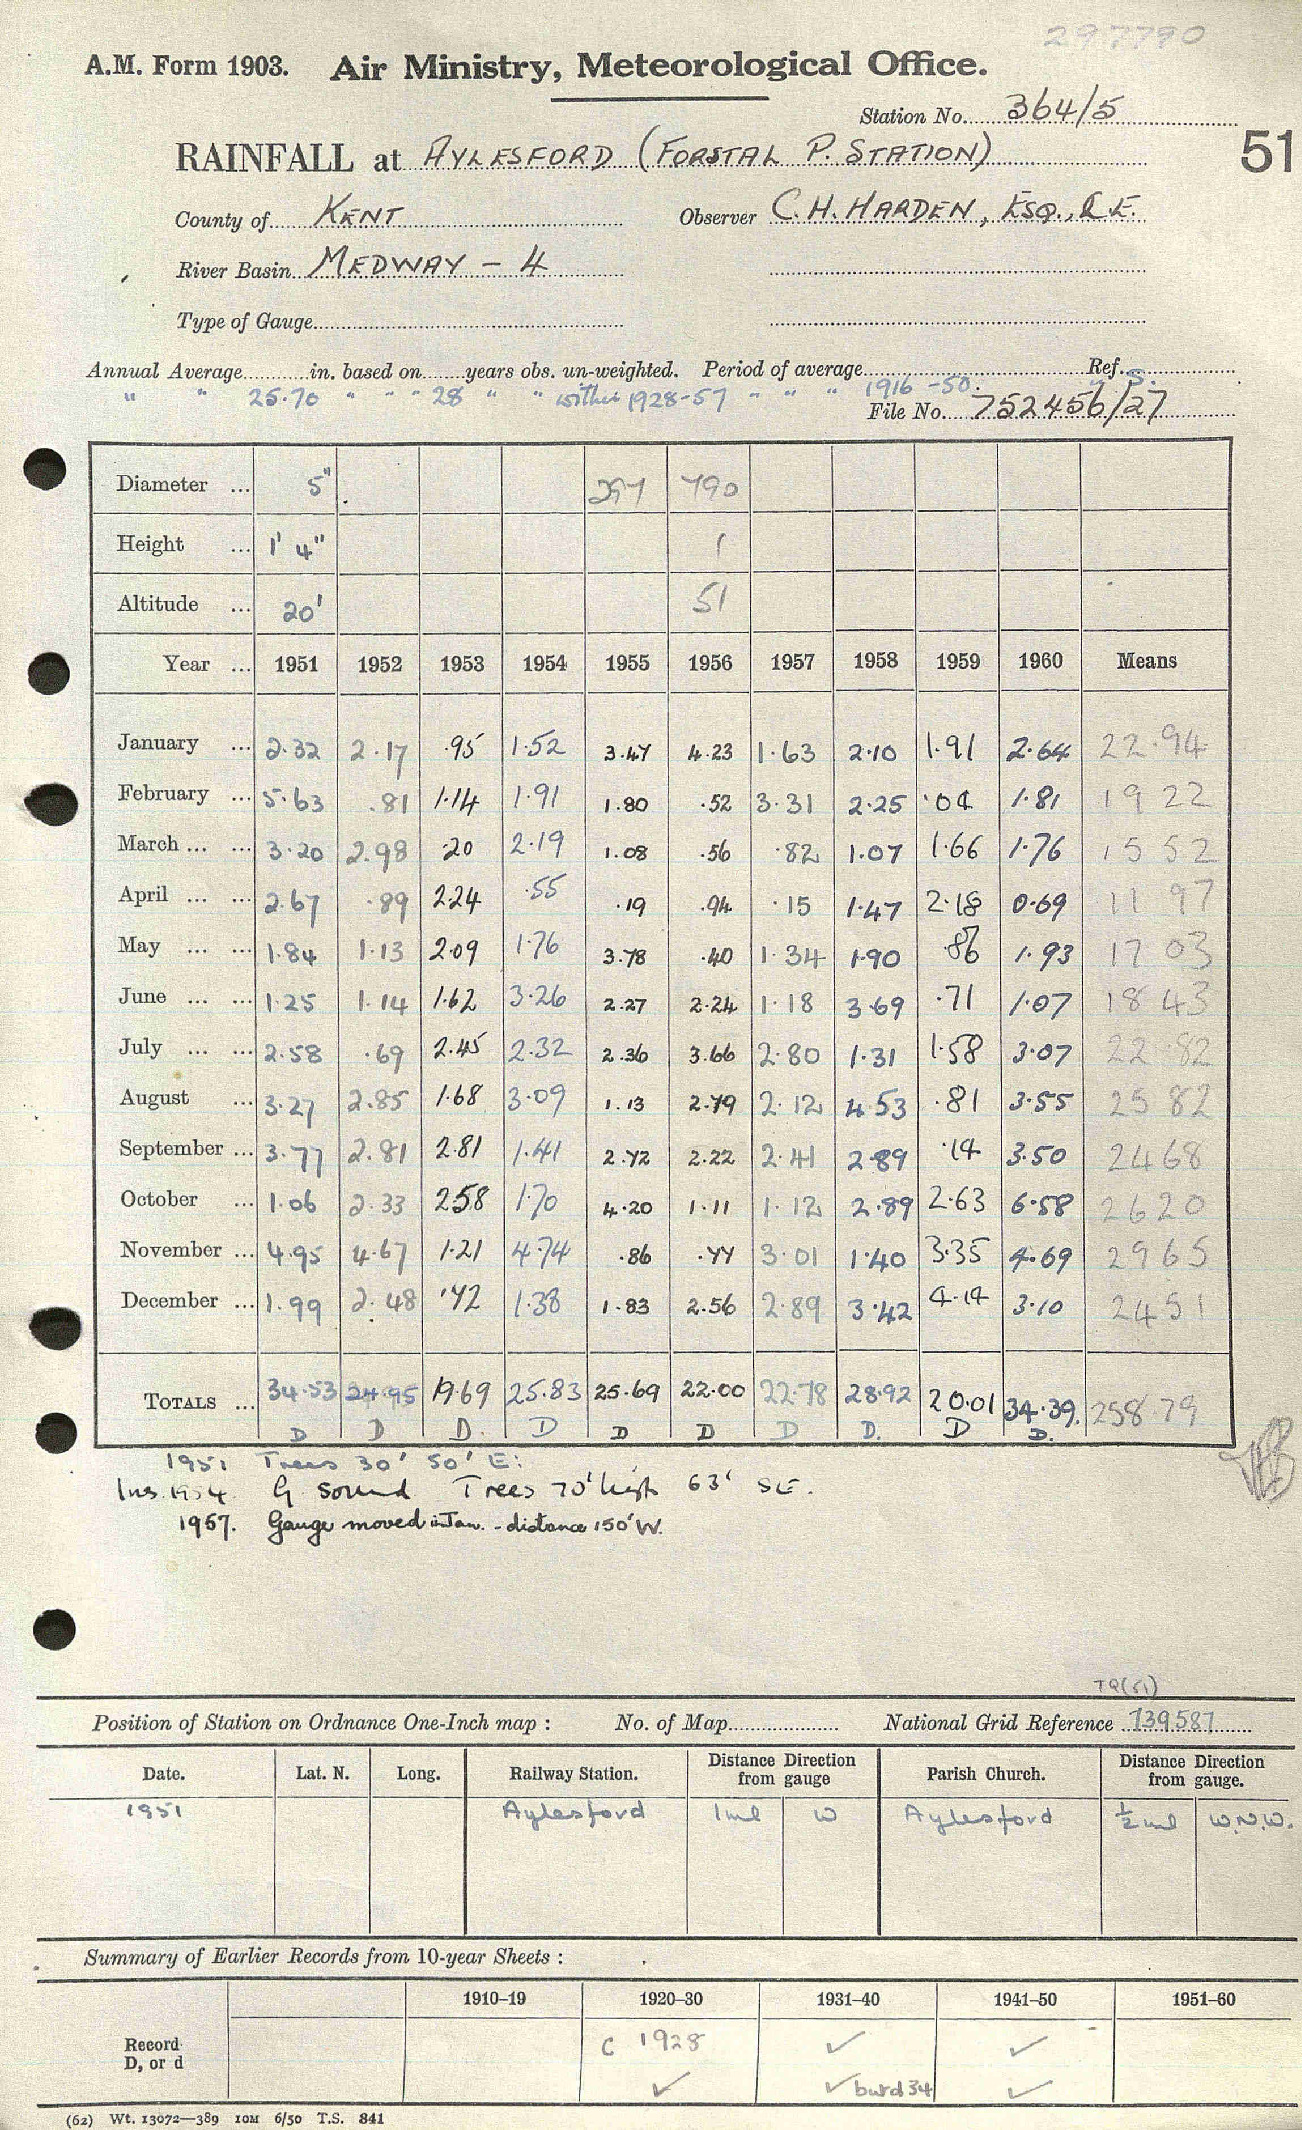 297790
A.M. Form 1903. Air Ministry, Meteorological Office.
Station No. 364/5
51
RAINFALL at AYLESFORD (FORSTAL P. STATION)
County of KENT Observer C.H. HARDEN, ESQ., C.E.
River Basin MEDWAY - 4
Type of Gauge
Annual Average in. based on years obs. un-weighted. Period of average Ref.
" " 25.70 " " " 28 " " within 1928-57 " " " 1916-50. " S.
File No. 752456/27
Diameter ... 5" 297 790
Height ... 1' 4" 1
Altitude ... 20' 51
Year ... 1951 1952 1953 1954 1955 1956 1957 1958 1959 1960 Means
January ... 2.32 2.17 .95 1.52 3.47 4.23 1.63 2.10 1.91 2.64 22.94
February ... 5.63 .81 1.14 1.91 1.80 .52 3.31 2.25 .04 1.81 19 22
March ... ... 3.20 2.98 .20 2.19 1.08 .56 .82 1.07 1.66 1.76 15 52
April ... ... 2.67 .89 2.24 .55 .19 .94 .15 1.47 2.18 0.69 11 97
May ... ... 1.84 1.13 2.09 1.76 3.78 .40 1.34 1.90 .86 1.93 17 03
June ... ... 1.25 1.14 1.62 3.26 2.27 2.24 1.18 3.69 .71 1.07 18 43
July ... ... 2.58 .69 2.45 2.32 2.36 3.66 2.80 1.31 1.58 3.07 22 82
August ... 3.27 2.85 1.68 3.09 1.13 2.79 2.12 4.53 .81 3.55 25 82
September ... 3.77 2.81 2.81 1.41 2.72 2.22 2.41 2.89 .14 3.50 24 68
October ... 1.06 2.33 2.58 1.70 4.20 1.11 1.12 2.89 2.63 6.58 26 20
November ... 4.95 4.67 1.21 4.74 .86 .77 3.01 1.40 3.35 4.69 29 65
December ... 1.99 2.48 .72 1.38 1.83 2.56 2.89 3.42 4.14 3.10 24 51
TOTALS ... 34.53 24.95 19.69 25.83 25.69 22.00 22.78 28.92 20.01 34.39. 258.79
D D D. D D D D D. D D.
1951 Trees 30' 50' E:
Ins. 1954. G sound Trees 70' high 63' SE.
1957. Gauge moved in Jan. - distance 150' W.
TQ(51)
Position of Station on Ordnance One-Inch map : No. of Map National Grid Reference 739587
Date. Lat. N. Long. Railway Station. Distance Direction from gauge Parish Church. Distance Direction from gauge.
1951 Aylesford 1 ml W Aylesford ½ ml W.N.W.
Summary of Earlier Records from 10-year Sheets :
1910-19 1920-30 1931-40 1941-50 1951-60
Record D, or d C 1928 ✓ ✓
✓ ✓ but d 34 ✓
(62) Wt. 13072—389 10M 6/50 T.S. 841